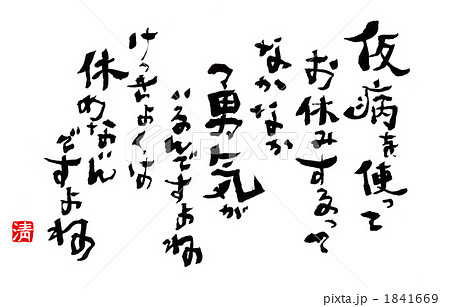 仮病を使って
お休みするって
なかなか
勇気が
いるんですよね
けっきょくは
休めないん
ですよね
清
PIXTA
pixta.jp - 1841669